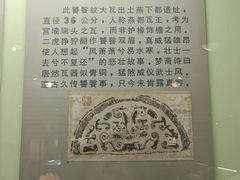 此饕餮纹大瓦出土燕下都遗址，
直径36公分，人称燕都瓦王，考为
宫墙端头之瓦，而非护椽饰檐之用，
二虎狰狞翻作饕餮双眉，真威猛雄昂
使人想起“风萧萧兮易水寒，壮士一
去兮不复还”的悲壮故事，梦斋诗曰
居然瓦器似青铜，猛煞威仪武士风，
亘古久传饕餮事，只今未肯露真